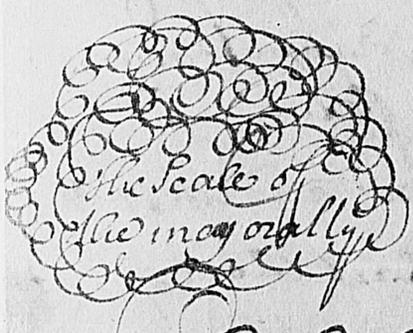 The Seale of
the mayorally